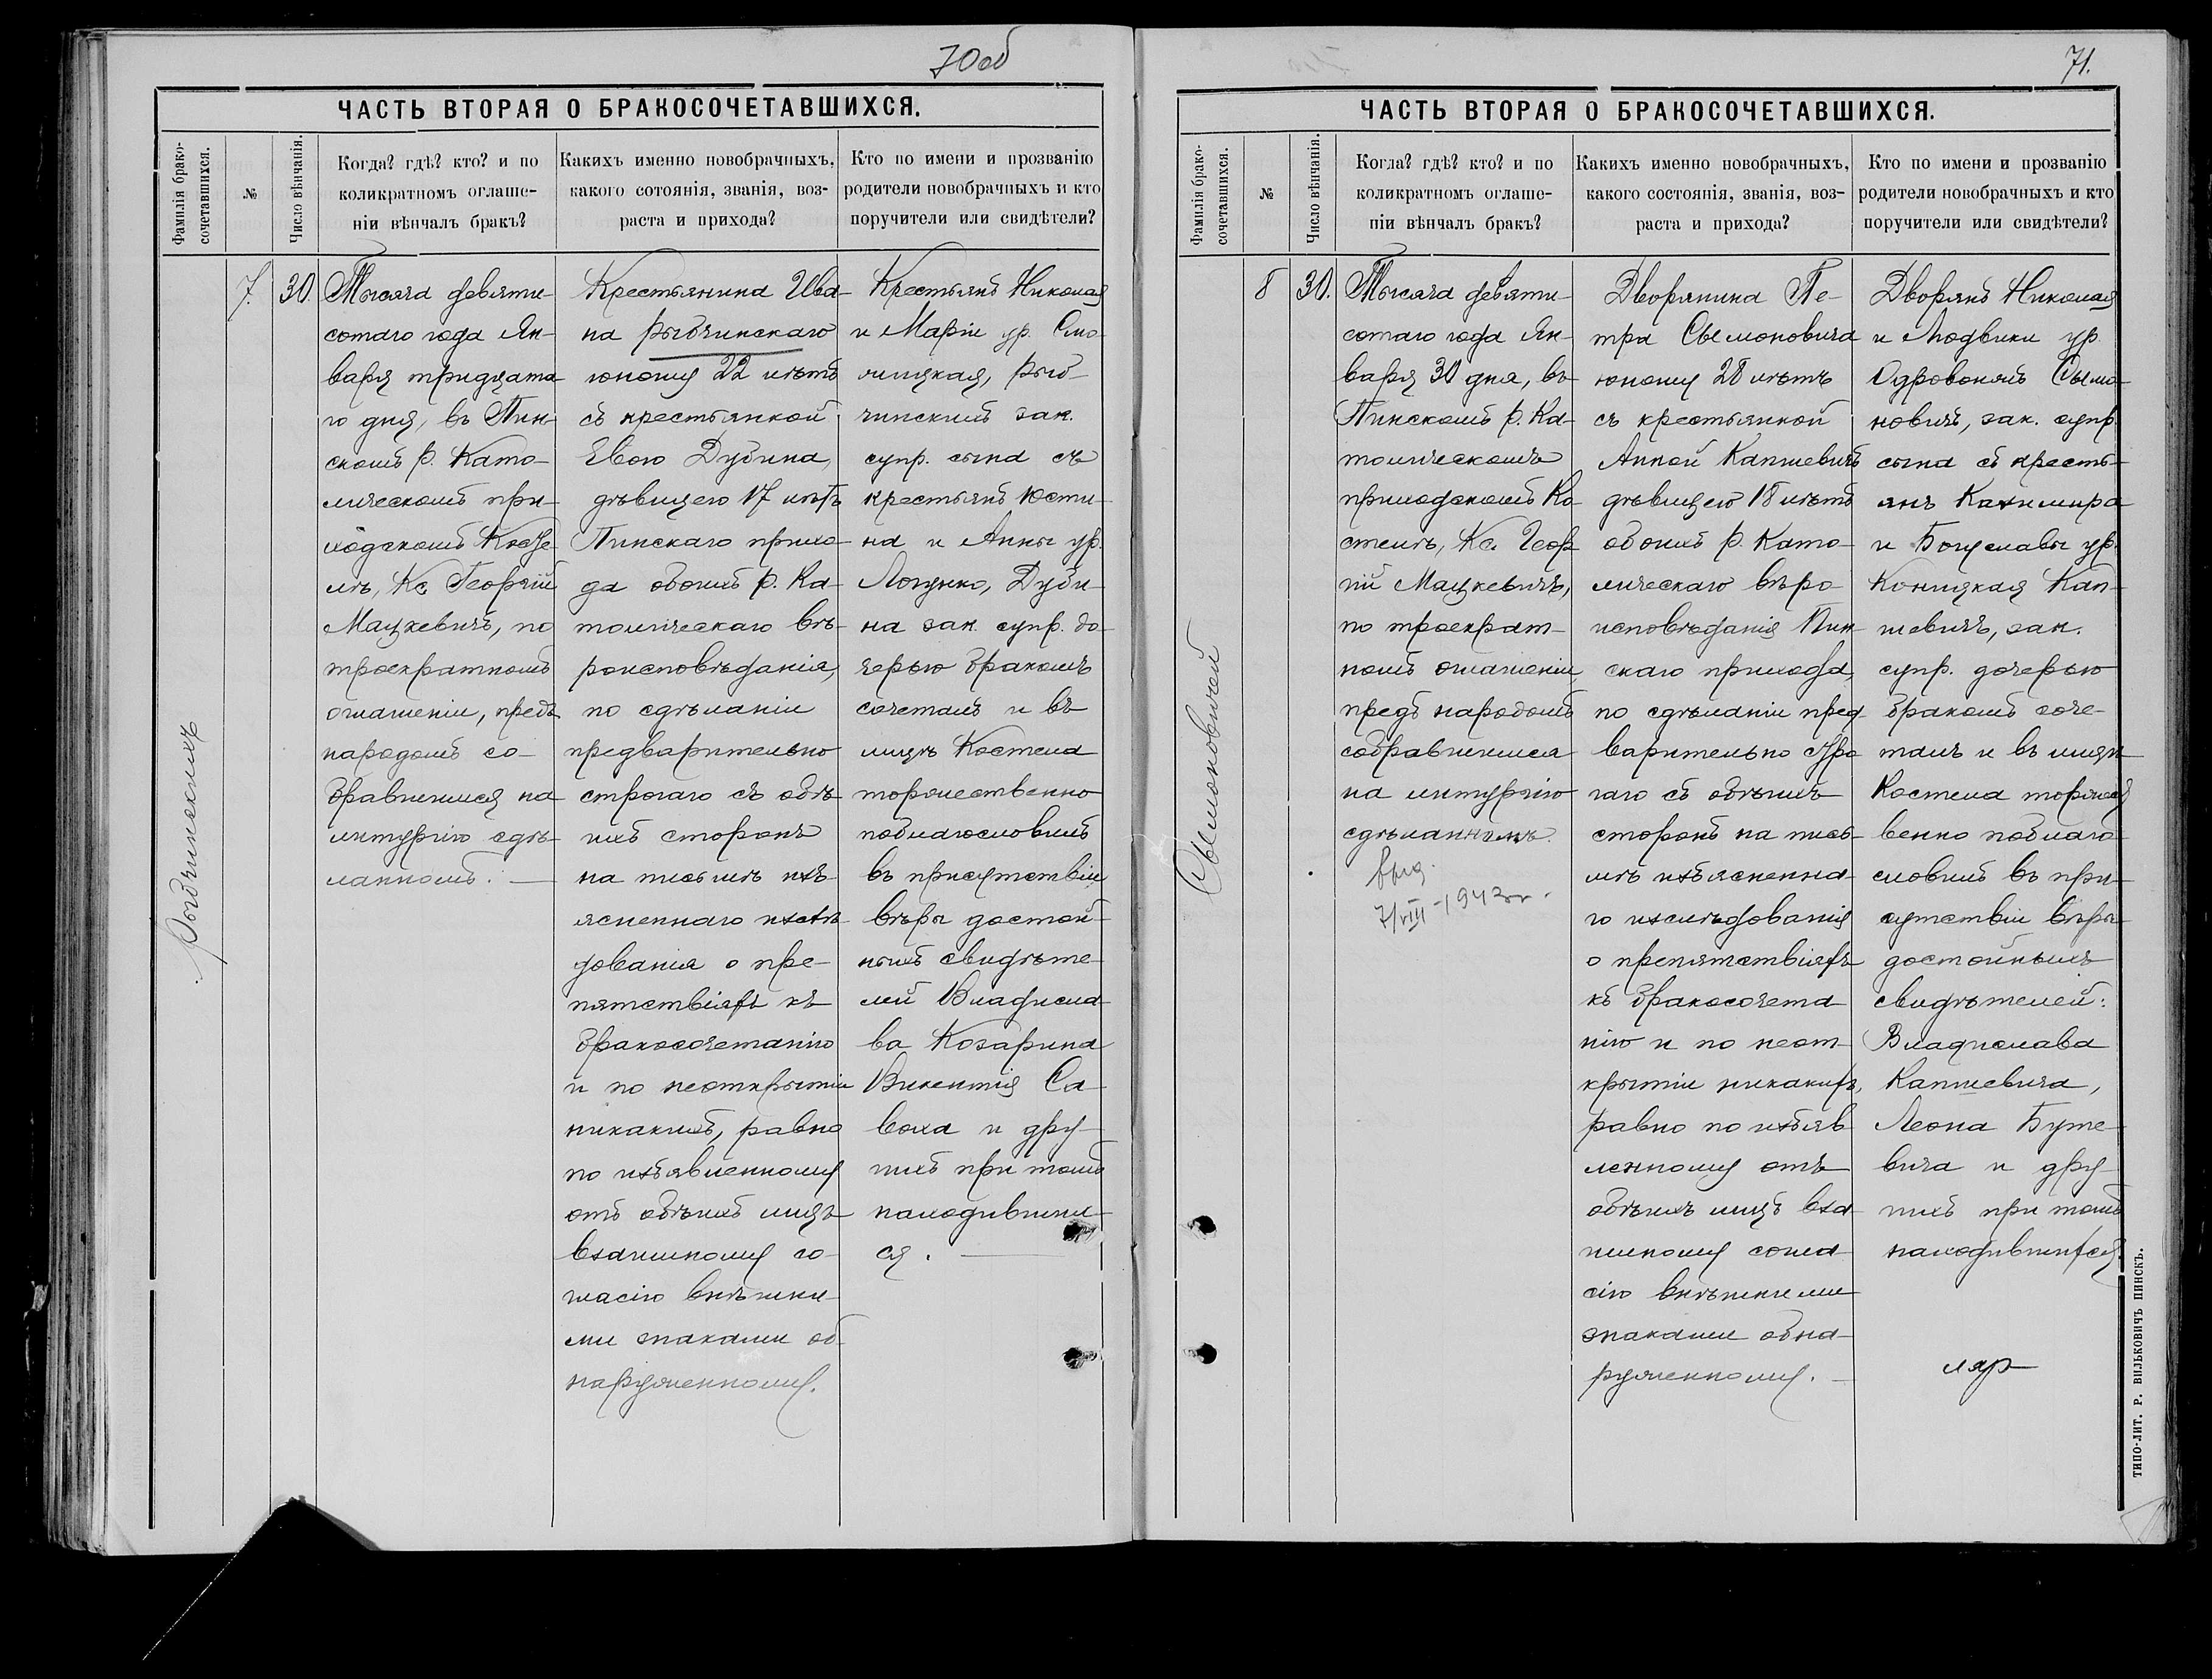 70об
ЧАСТЬ ВТОРАЯ О БРАКОСОЧЕТАВШИХСЯ.
Фамилія брако-
сочетавшихся.
№
Число вѣнчанія.
Когда? гдѣ? кто? и по
коликратномъ оглаше-
ніи вѣнчалъ бракъ?
Какихъ именно новобрачныхъ,
какого сотоянія, званія, воз-
раста и прихода?
Кто по имени и прозванію
родители новобрачныхъ и кто
поручители или свидѣтели?
Рыбчинскихъ
7.
30.
Тысяча девяти-
сотаго года Ян-
варя тридцата
го дня, въ Пин-
скомъ р. Като-
лическомъ при-
ходскомъ Косте
лѣ, Кс. Георгій
Мацкевичъ, по
троекратномъ
оглашеніи, предъ
народомъ со-
бравшимся на
литургію сдѣ-
ланномъ.
Крестьянина Ива-
на Рыбчинскаго
юношу 22 лѣтъ
съ крестьянкой
Евою Дубина,
дѣвицею 17 лѣтъ
Пинскаго прихо-
да обоихъ р. Ка-
толическаго вѣ-
роисповѣданія,
по сдѣланіи
предварительно
строгаго съ обѣ
ихъ сторонъ
на письмѣ изъ
ясненнаго изслѣ
дованія о пре-
пятствіяхъ къ
бракосочетанію
и по неоткрытіи
никакихъ, равно
по изъявленному
отъ обѣихъ лицъ
взаимному со-
гласію внѣшни-
ми знаками об-
наруженному.
Крестьянъ Николая
и Маріи ур. Смо-
лицкая, Рыб-
чинскихъ зак.
супр. сына съ
крестьянъ Юсти-
на и Анны ур.
Логунко, Дуби-
на зак. супр. до-
черью бракомъ
сочеталъ и въ
лицѣ Костела
торжественно
поблагословилъ
въ присутствіи
вѣры достой-
ныхъ свидѣте
лей Владисла-
ва Козарина
Викентія Са-
воха и дру-
гихъ при томъ
находившихъ-
ся.
71.
ЧАСТЬ ВТОРАЯ О БРАКОСОЧЕТАВШИХСЯ.
Фамилія брако-
сочетавшихся.
№
Число вѣнчанія.
Когда? гдѣ? кто? и по
коликратномъ оглаше-
ніи вѣнчалъ бракъ?
Какихъ именно новобрачныхъ,
какого состоянія, званія, воз-
раста и прихода?
Кто по имени и прозванію
родители новобрачныхъ и кто
поручители или свидѣтели?
Сымоновичей
8
30.
Тысяча девяти-
сотаго года Ян-
варя 30 дня, въ
Пинскомъ р. Ка-
толическомъ
приходскомъ Ко-
стелѣ, Кс. Геор
гій Мацкевичъ,
по троекрат-
номъ оглашеніи,
предъ народомъ
собравшимся
на литургію
сдѣланномъ.
7/VIII-1942 г.
Дворянина Пе-
тра Сымоновича
юношу 28 лѣтъ
съ крестьянкой
Анной Капшевичъ
дѣвицею 18 лѣтъ
обоихъ р. Като-
лическаго вѣро-
исповѣданія Пин-
скаго прихода,
по сдѣланіи пред-
варительно стро
гаго съ обѣихъ
сторонъ на пись-
мѣ изъясненна-
го изслѣдованія
о препятствіяхъ
къ бракосочета-
нію и по неот-
крытіи никакихъ,
равно по изъяв-
ленному отъ
обѣихъ лицъ вза-
имному согла-
сію внѣшними
знаками обна-
руженному.
Дворянъ Николая
и Людвики ур.
Одровонжъ Сымо-
новичъ, зак. супр.
сына съ кресть-
янъ Казимира
и Богуславы ур.
Коницкая Кап-
шевичъ, зак.
супр. дочерью
бракомъ соче-
талъ и въ лицѣ
Костела торжест
венно поблаго-
словилъ въ при-
сутствіи вѣры
достойныхъ
свидѣтелей:
Владислава
Капшевича,
Леона Буте-
вича и дру-
гихъ при томъ
находившихся.
ТИПО-ЛИТ. Р. ВИЛЬКОВИЧЪ ПИНСКЪ.